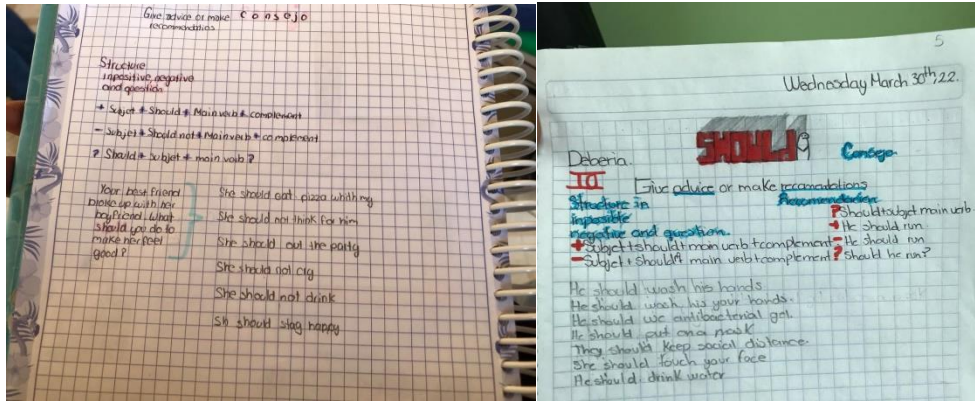 Give advice or make consejo
recommendations
Structure
inpositive, negative
and question
+ Subjet + Should + Main verb + complement
- Subjet + Should not + Main verb + complement
? Should + subjet + main verb ?
Your best friend
broke up with her
boyfriend. What
should you do to
make her feel
good?
She should eat pizza whith my
She should not think for him
She should out the party
She should not cry
She should not drink
Sh should stay happy
5
Wednesday March 30th, 22.
SHOULD
Deberia.
Consejo
To Give advice or make recomendations
Recomendacion
Structure in
imposible
negative and question.
+ Subject + should + main verb + complement
- Subject + Shouldn't main verb + complement
? Should + subjet main verb
+ He should run
- He should run
? Should he run?
He should wash his hands
He should wach his your hands.
He should antibacterial gel.
He should put on a mask
They should keep social distance.
She should touch your face
He should drink water